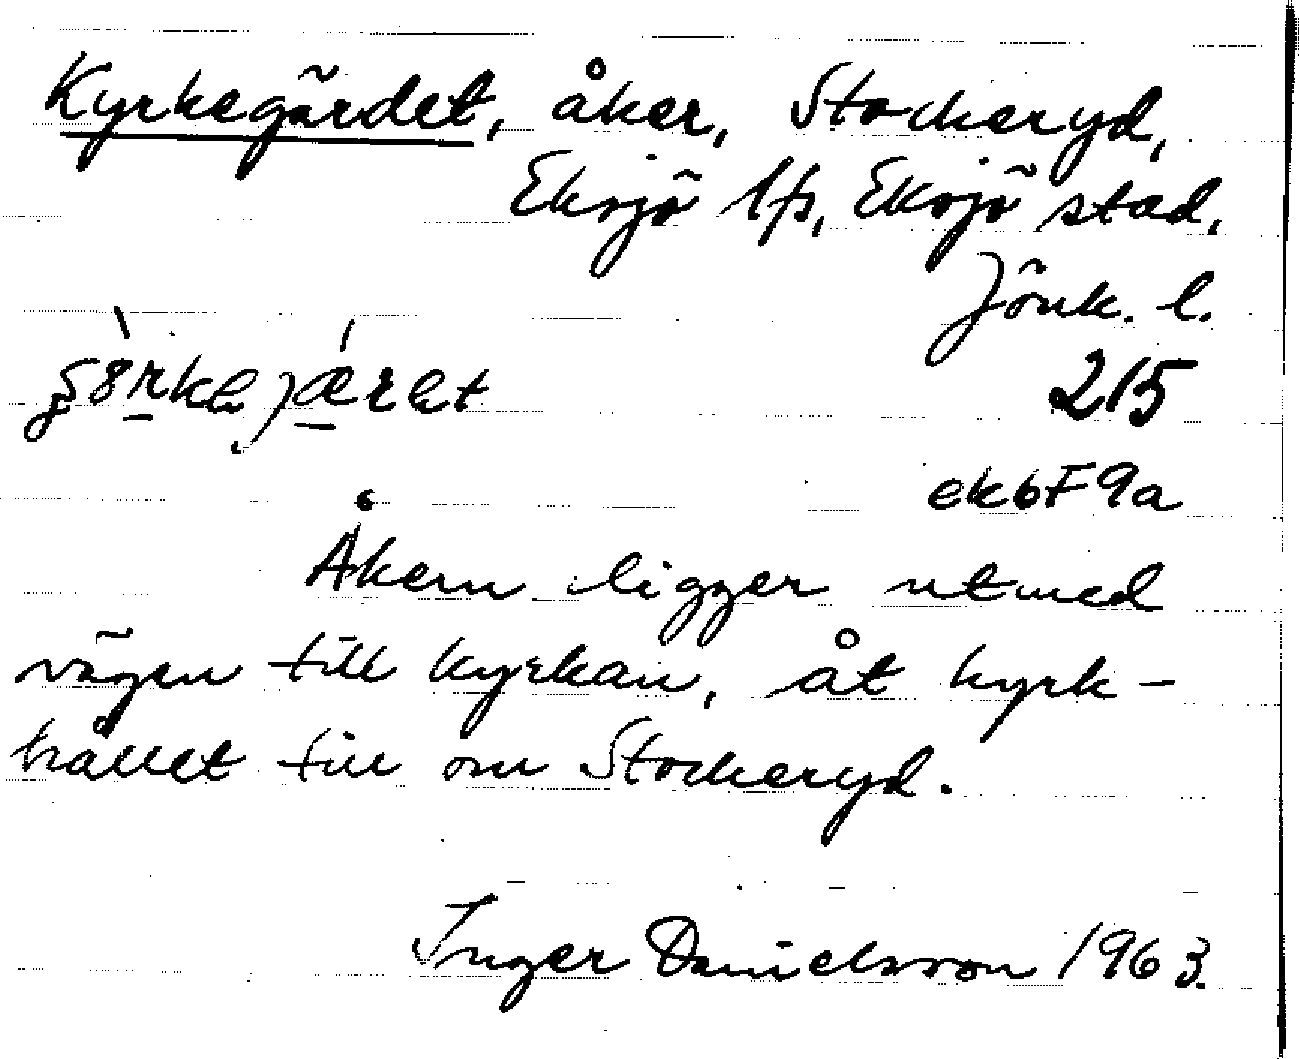 Kyrkegärdet, åker, Stockeryd,
Eksjö lfs, Eksjö stad,
Jönk. l.
215
ek6F9a
Åkern ligger utmed
vägen till kyrkan, åt kyrk-
hållet till om Stockeryd.
Inger Danielsson 1963.